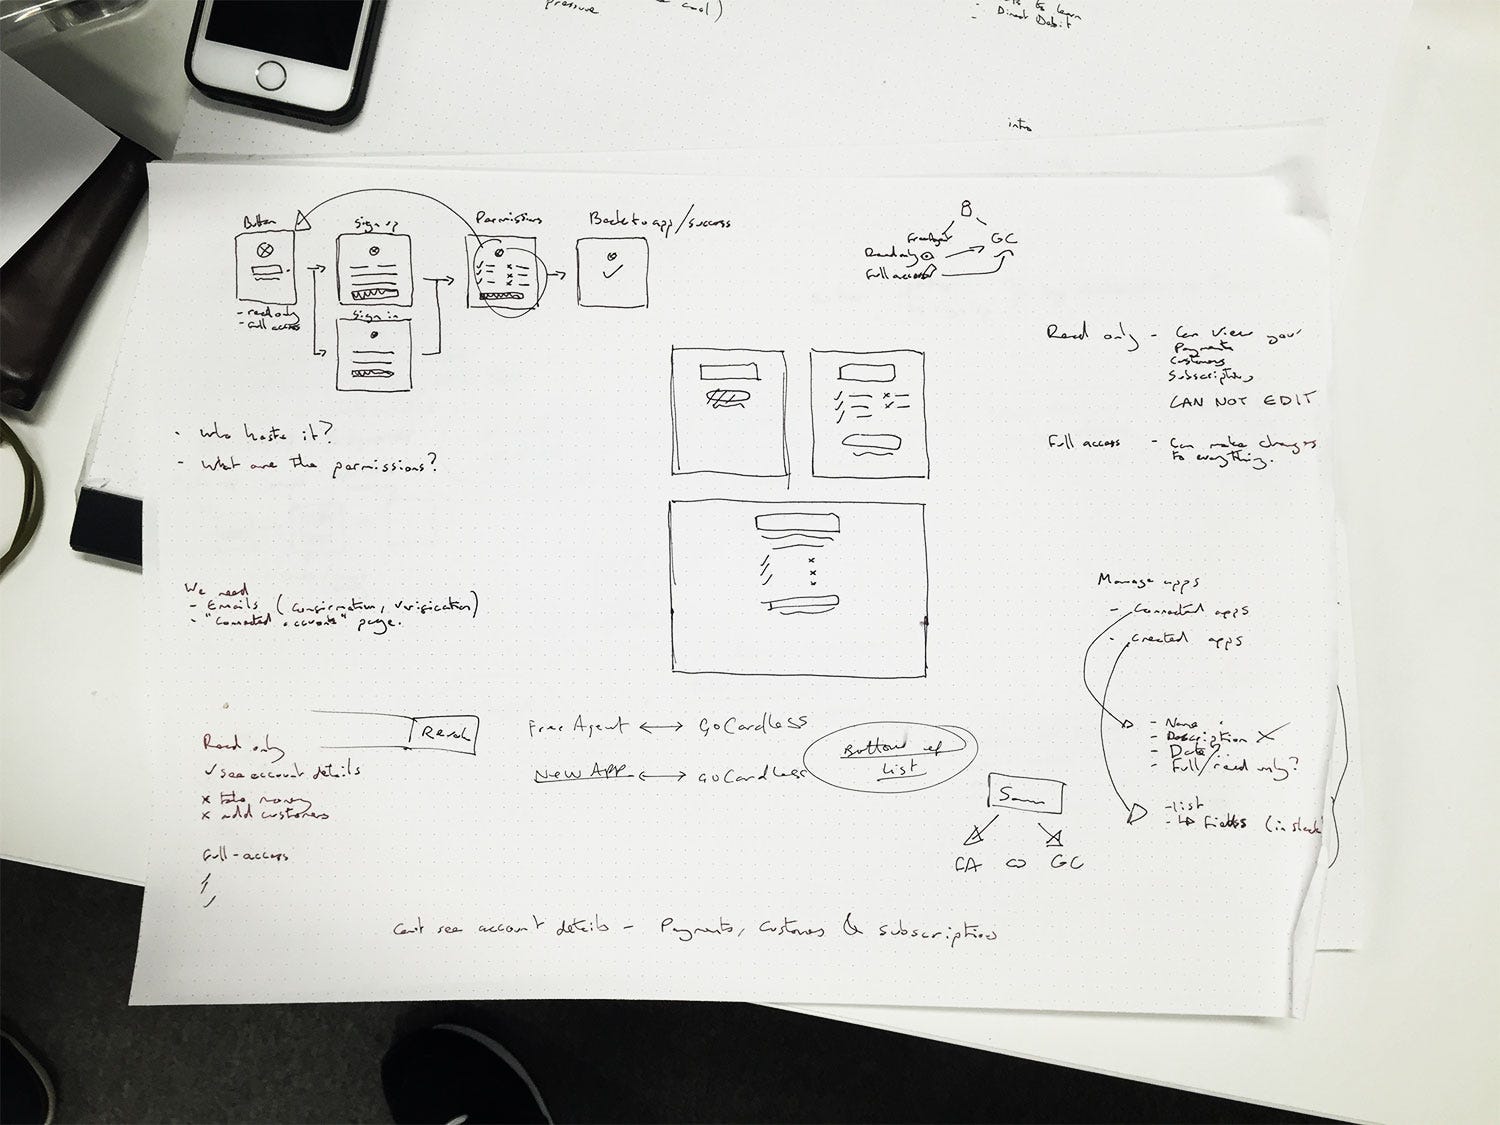 pressure
cool)
to learn
- Direct Debit
intro
Button
Sign up
Permissions
Back to app/success
- read only
- full access
Sign in
FreeAgent
GC
Read only
Full access
- Who hosts it?
- What are the permissions?
Read only - Can view your
Payments
Customers
Subscriptions
CAN NOT EDIT
Full access - Can make changes
to everything.
We need
- Emails (confirmation, verification)
- "Connected accounts" page.
Manage apps
- Connected apps
- Created apps
- Name
- Description X
- Date
- Full/read only?
- list
- fields (in slack
Read only
✓ see account details
x take money
x add customers
Full-access
FreeAgent ↔ GoCardless
New APP ↔ GoCardless
list
FA
GC
Can't see account details - Payments, Customers & subscriptions